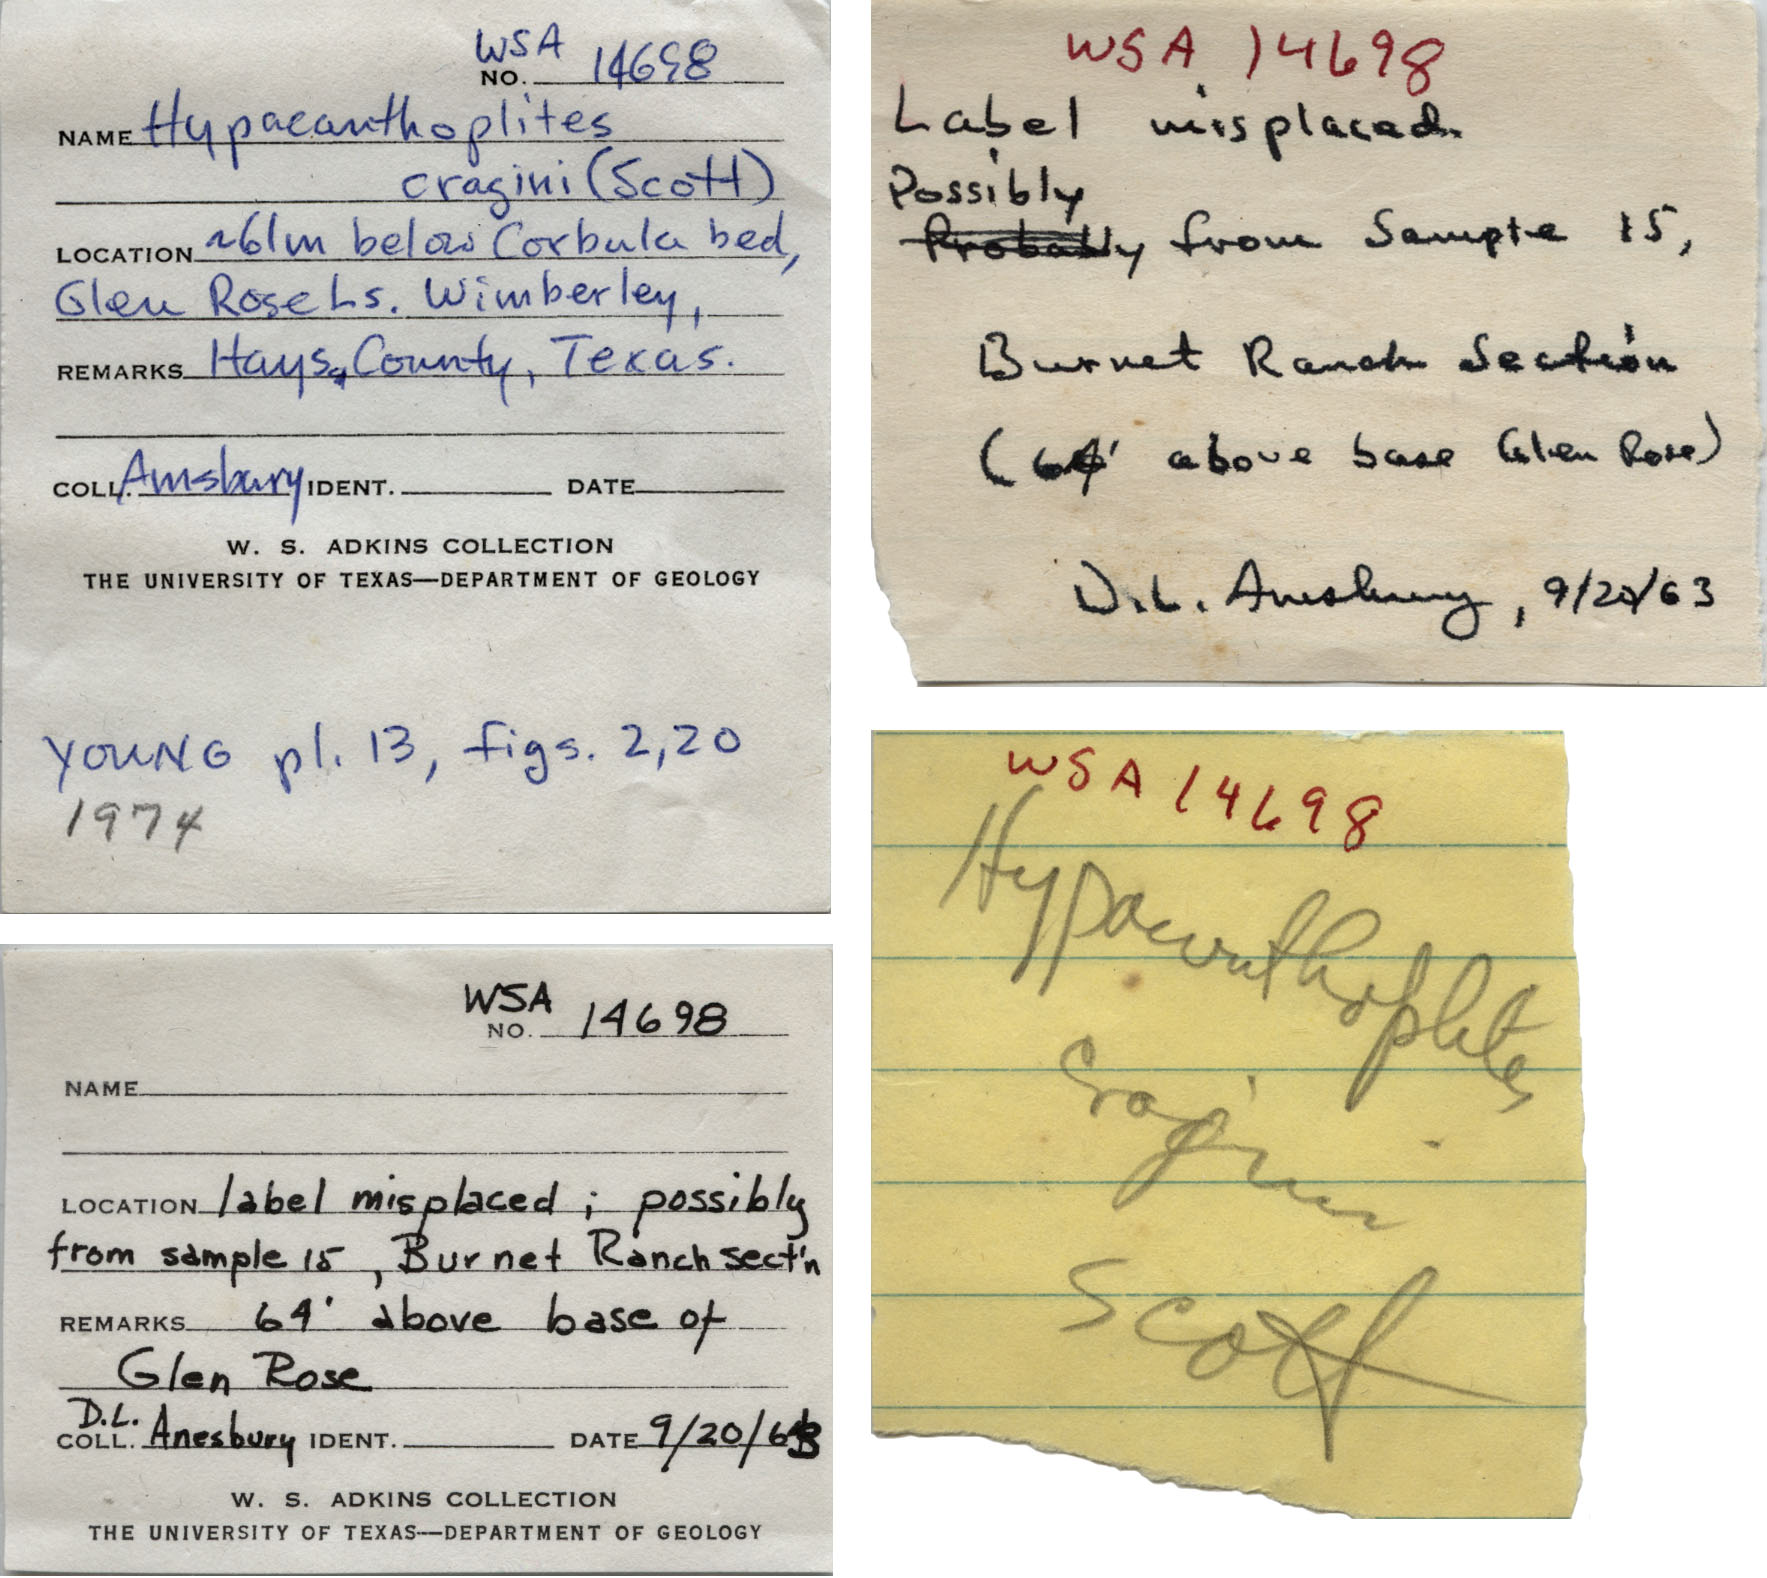 WSA
NO. 14698
NAME Hypacanthoplites
cragini (Scott)
LOCATION ~61m below Corbula bed,
Glen Rose Ls. Wimberley,
REMARKS Hays County, Texas.
COLL. Amsbury IDENT. DATE
W. S. ADKINS COLLECTION
THE UNIVERSITY OF TEXAS—DEPARTMENT OF GEOLOGY
YOUNG pl. 13, figs. 2,20
1974
WSA 14698
Label misplaced
Possibly
Probably from Sample 15,
Burnet Ranch Section
(64' above base Glen Rose)
D.L. Amsbury, 9/20/63
WSA
NO. 14698
NAME
LOCATION label misplaced ; possibly
from sample 15, Burnet Ranch sect'n
REMARKS 64' above base of
Glen Rose
D.L.
COLL. Anesbury IDENT. DATE 9/20/63
W. S. ADKINS COLLECTION
THE UNIVERSITY OF TEXAS—DEPARTMENT OF GEOLOGY
WSA 14698
Hypacanthoplites
cragini
Scott